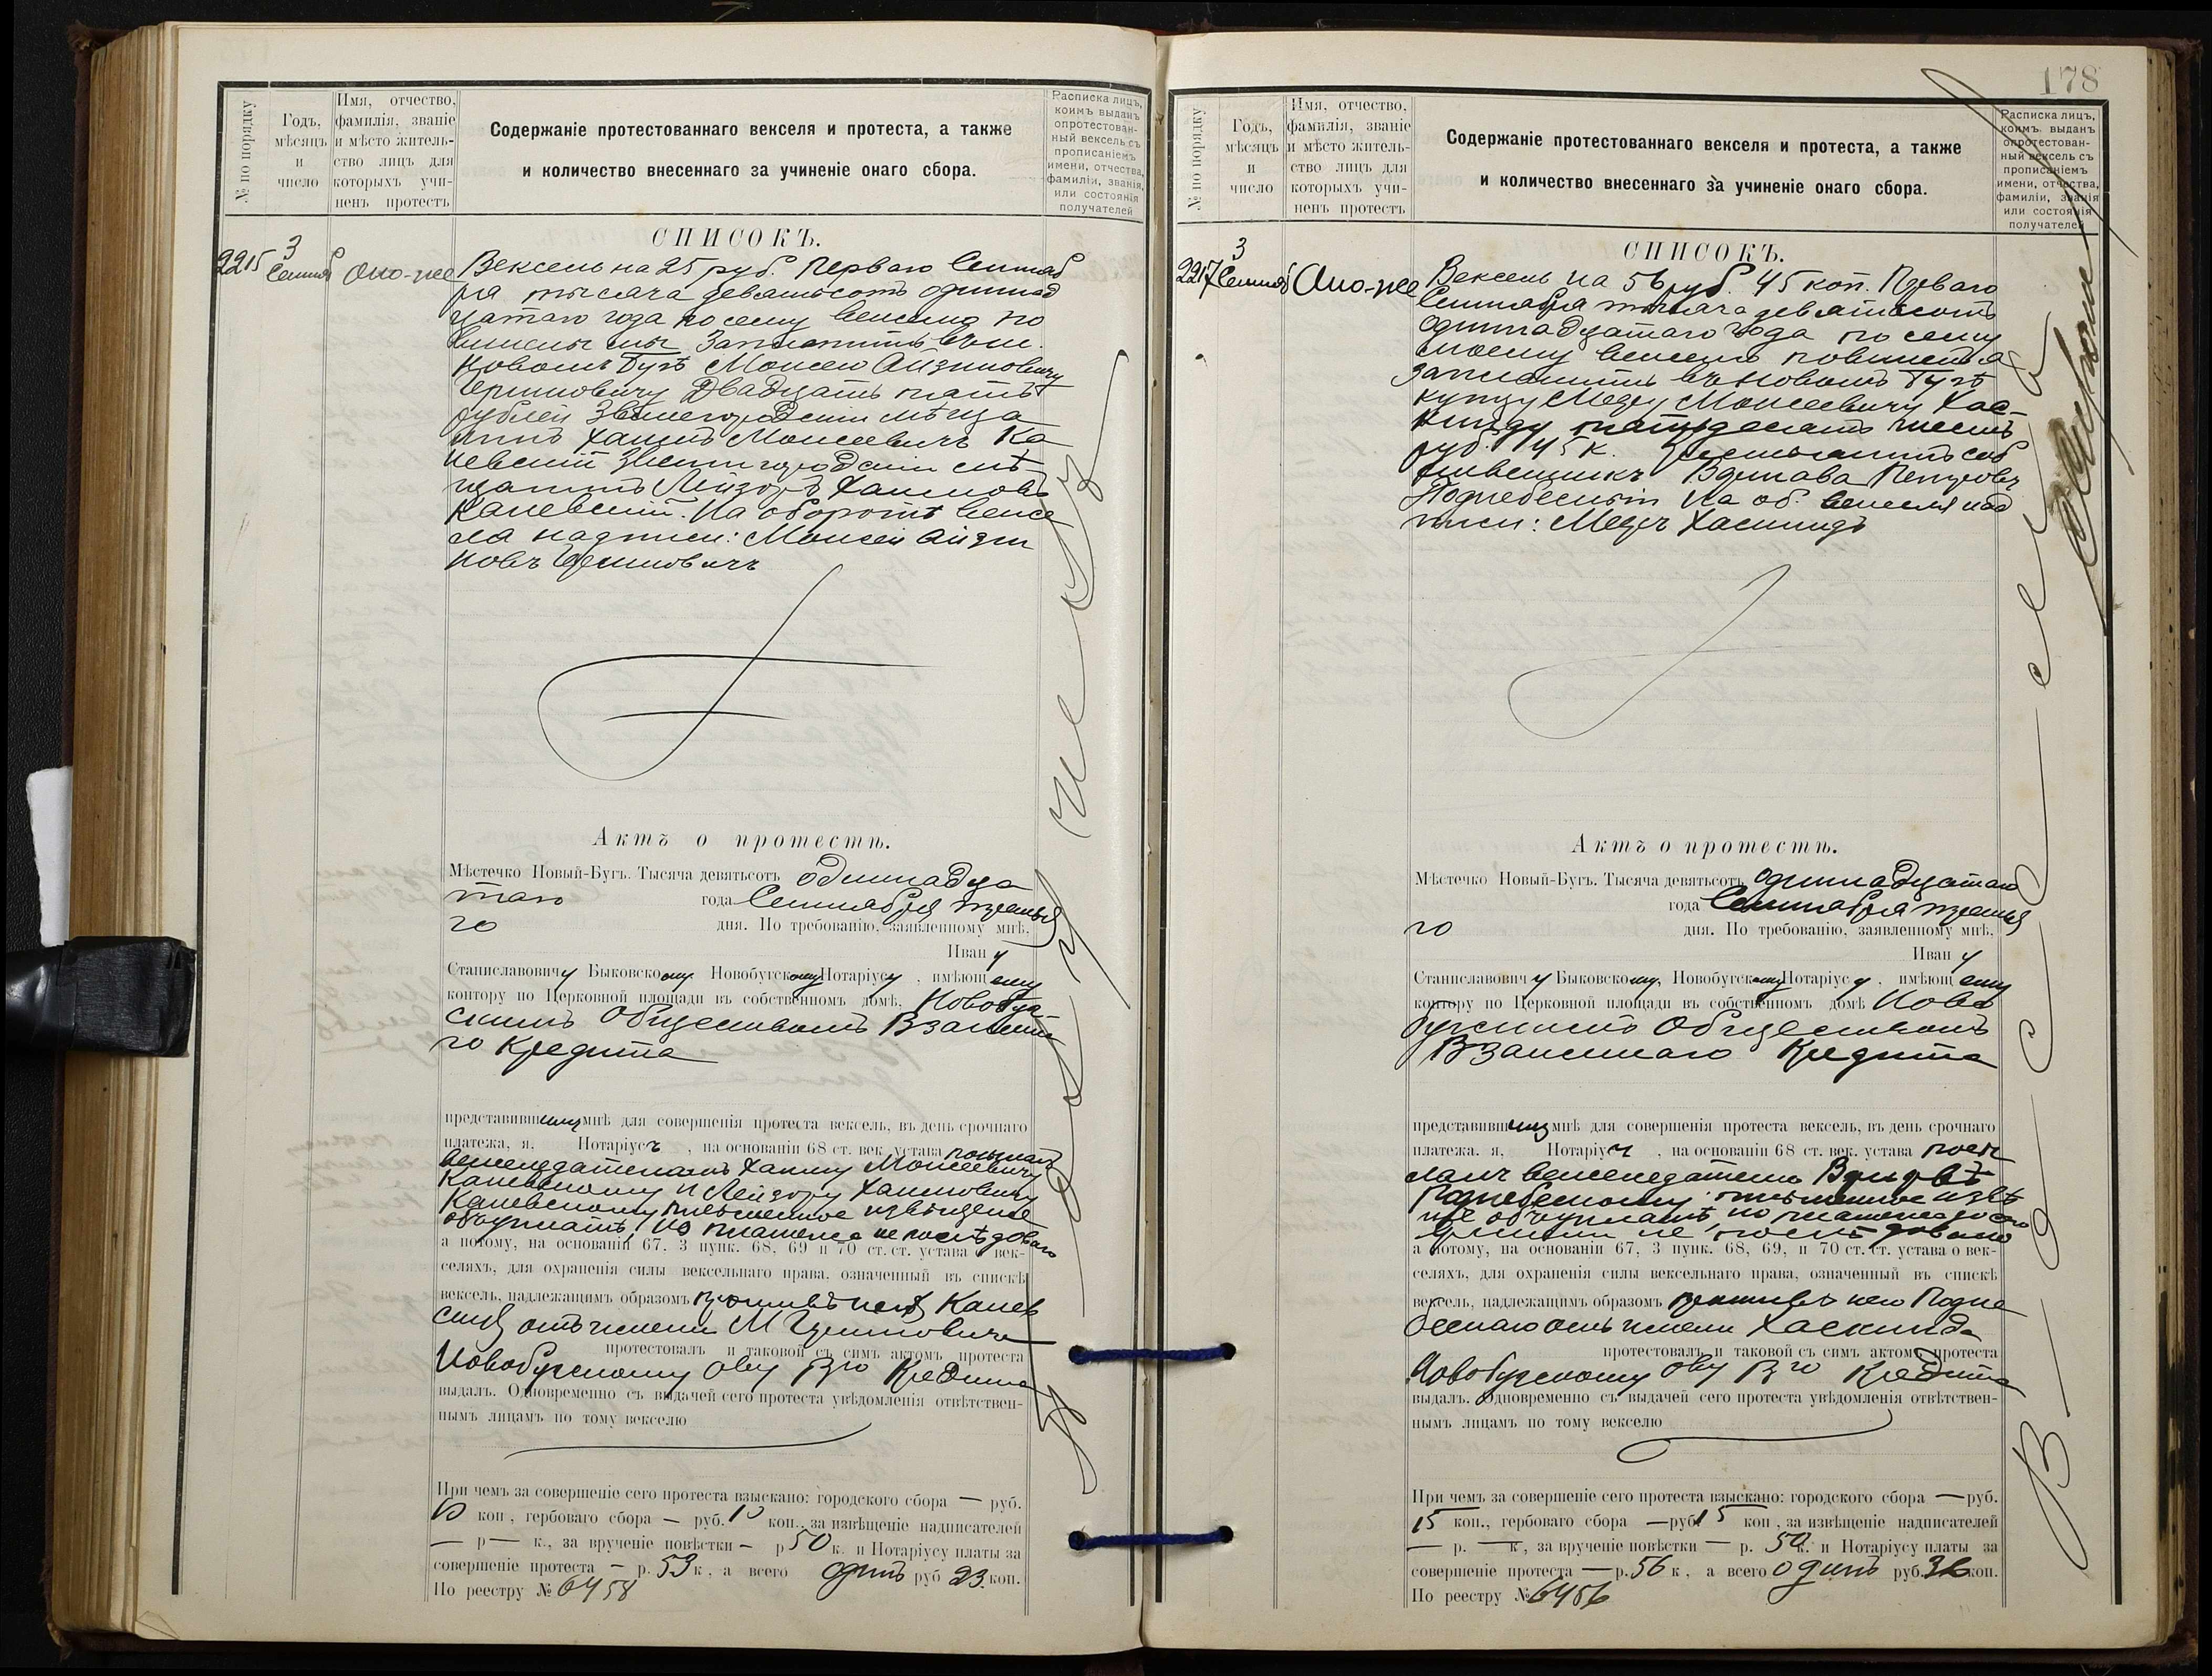 № по порядку
Годъ,
мѣсяцъ
и
число
Имя, отчество,
фамилія, званіе
и мѣсто житель-
ство лицъ для
которыхъ учи-
ненъ протестъ
Содержаніе протестованнаго векселя и протеста, а также
и количество внесеннаго за учиненіе онаго сбора.
Расписка лицъ,
коимъ выданъ
опротестован-
ный вексель съ
прописаніемъ
имени, отчества,
фамиліи, званія,
или состоянія
получателей
СПИСОКЪ.
2215
3
Сентяб
Оно-же
Вексель на 25 руб. Перваго Сентяб
ря тысяча девятьсотъ одиннад
цатаго года по сему векселю по
винны мы заплатить въ м.
Новомъ Бугѣ Моисею Айзиковичу
Двадцать пять
рублей Звенигородскій мѣща
нинъ Хаимъ Моисеевичъ Ка
невскій Звенигородскій мѣ-
щанинъ Лейзоръ Хаимовъ
Каневскій. На оборотѣ вексе
ля надписи: Моисей Айзи
ковъ
Актъ о протестѣ.
Мѣстечко Новый-Бугъ. Тысяча девятьсотъ одиннадца
таго года Сентября третья
го дня. По требованію, заявленному мнѣ,
Ивану
Станиславовичу Быковскому Новобугскому Нотаріусу, имѣющему
контору по Церковной площади въ собственномъ домѣ, Новобуг-
скимъ Обществомъ Взаимна
го Кредита
представившимъ мнѣ для совершенія протеста вексель, въ день срочнаго
платежа, я, Нотаріусъ, на основаніи 68 ст. век. устава послалъ
векселедателямъ Хаиму Моисеевичу
Каневскому и Лейзору Хаимовичу
Каневскому письменное извѣщеніе
объ уплатѣ, но платежа не послѣдовало
а потому, на основаніи 67, 3 пунк. 68, 69 и 70 ст. ст. устава о век-
селяхъ, для охраненія силы вексельнаго права, означенный въ спискѣ
вексель, надлежащимъ образомъ противъ нихъ Канев
скихъ отъ имени М
протестовалъ и таковой съ симъ актомъ протеста
Новобугскому Ову Вго Кредита
выдалъ. Одновременно съ выдачей сего протеста увѣдомленія отвѣтствен-
нымъ лицамъ по тому векселю
При чемъ за совершеніе сего протеста взыскано: городского сбора — руб.
10 коп., гербоваго сбора — руб. 10 коп., за извѣщеніе надписателей
— р — к., за врученіе повѣстки — р 50 к. и Нотаріусу платы за
совершеніе протеста — р. 53 к, а всего одинъ руб 23 коп.
По реестру № 6458
178
№ по порядку
Годъ,
мѣсяцъ
и
число
Имя, отчество,
фамилія, званіе
и мѣсто житель-
ство лицъ для
которыхъ учи-
ненъ протестъ
Содержаніе протестованнаго векселя и протеста, а также
и количество внесеннаго за учиненіе онаго сбора.
Расписка лицъ,
коимъ выданъ
опротестован-
ный вексель съ
прописаніемъ
имени, отчества,
фамиліи, званія
или состоянія
получателей
СПИСОКЪ.
2217
3
Сентяб
Оно-же
Вексель на 56 руб. 45 коп. Перваго
Сентября тысяча девятьсотъ
одиннадцатаго года по сему
моему векселю повиненъ я
заплатить въ Новомъ Бугѣ
купцу Мееру Моисеевичу Хас-
кинду пятьдесятъ шесть
руб. 45 к. Крестьянинъ соб
ственникъ Петровъ
Поднебесный На об. векселя над
писи: Мееръ Хаскиндъ
Актъ о протестѣ.
Мѣстечко Новый-Бугъ. Тысяча девятьсотъ одиннадцатаго
года Сентября третья
го дня. По требованію, заявленному мнѣ,
Ивану
Станиславовичу Быковскому, Новобугскому Нотаріусу, имѣющему
контору по Церковной площади въ собственномъ домѣ Ново
бугскимъ Обществомъ
Взаимнаго Кредита
представившимъ мнѣ для совершенія протеста вексель, въ день срочнаго
платежа. я, Нотаріусъ, на основаніи 68 ст. век. устава пос
лалъ векселедателю
Поднебесному письменное извѣ
ніе объ уплатѣ, но платежа до сего
времени не послѣдовало
а потому, на основаніи 67, 3 пунк. 68, 69, и 70 ст. ст. устава о век-
селяхъ, для охраненія силы вексельнаго права, означенный въ спискѣ
вексель, надлежащимъ образомъ противъ него Подне
беснаго отъ имени Хаскинда
протестовалъ и таковой съ симъ актомъ протеста
Новобугскому Ову Вго Кредита
выдалъ. Одновременно съ выдачей сего протеста увѣдомленія отвѣтствен-
нымъ лицамъ по тому векселю
При чемъ за совершеніе сего протеста взыскано: городского сбора — руб.
15 коп., гербоваго сбора — руб 15 коп, за извѣщеніе надписателей
— р. — к, за врученіе повѣстки — р. 50 к. и Нотаріусу платы за
совершеніе протеста — р. 56 к, а всего одинъ руб. 36 коп.
По реестру № 6456